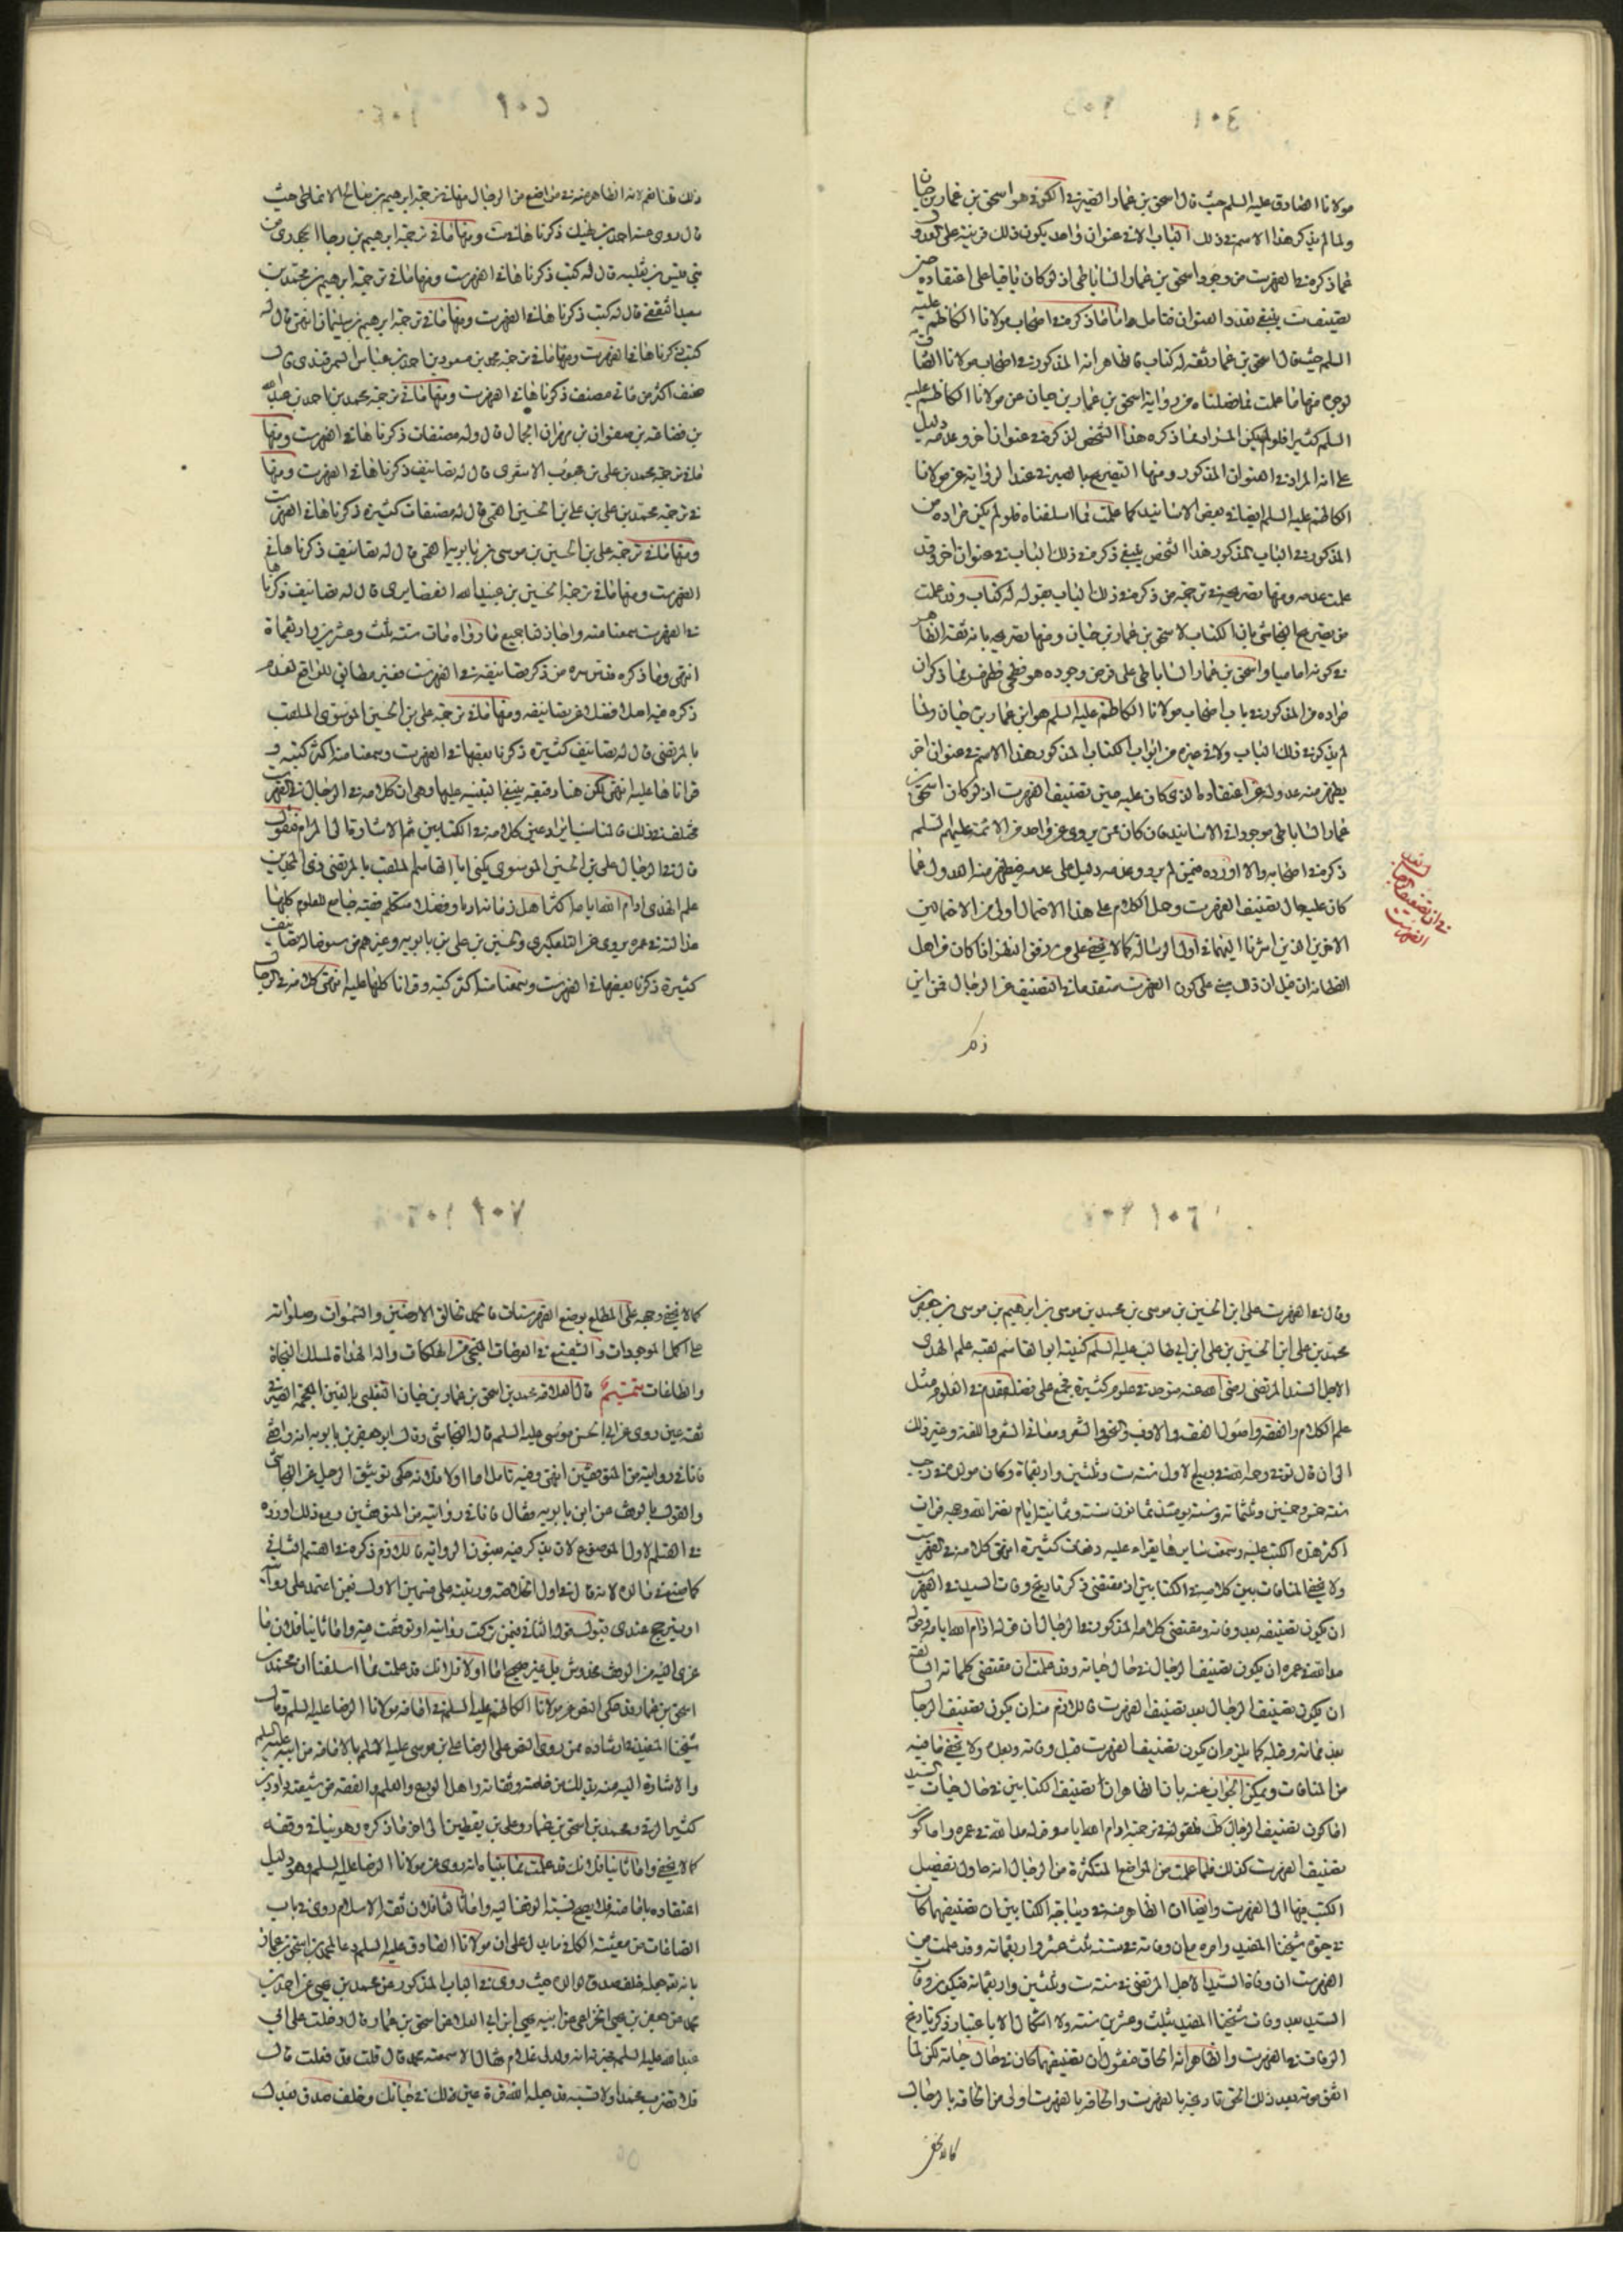 مولانا الصادق عليه السلم حيث قال اسحق بن عمار الصيرفى الكوفى هو اسحق بن عمار بن حيان
ولما لم يذكر هذا الاسم فى ذلك الباب الا فى عنوان واحد يكون ذلك قرينة على العدول
عما ذكره فى الفهرست من وجود اسحق بن عمار الساباطى اذ لو كان باقيا على اعتقاده حين
تصنيف ينبغى تعدد العنوان فتامل واما ما ذكره فى اصحاب مولانا الكاظم عليه
السلم حيث قال اسحق بن عمار ثقة له كتاب فالظاهر انه المذكور فى اصحاب مولانا الصادق
لوجوه منها ما علمت مما فصلناه من رواية اسحق بن عمار بن حيان عن مولانا الكاظم عليه
السلم كثيرا فلو لم يكن المراد مما ذكره هذا الشخص لذكره فى عنوان اخر وعدمه دليل
على انه المراد فى العنوان المذكور ومنها التصريح بالصيرفى عند الرواية عن مولانا
الكاظم عليه السلم ايضا فى بعض الاسانيد كما علمت مما اسلفناه فلو لم يكن مراده من
المذكور فى الباب المذكور هذا الشخص ينبغى ذكره فى ذلك الباب فى عنوان اخر وقد
علمت عدمه ومنها تصريحه فى ترجمة من ذكره فى ذلك الباب بقوله له كتاب وقد علمت
من تصريح النجاشى بان الكتاب لاسحق بن عمار بن حيان ومنها تصريحه بانه ثقة الظاهر
فى كونه اماميا واسحق بن عمار الساباطى على فرض وجوده هو فطحى فظهر مما ذكر ان
مراده من المذكور فى باب اصحاب مولانا الكاظم عليه السلم هو ابن عمار بن حيان ولما
لم يذكر فى ذلك الباب ولا فى غيره من ابواب الكتاب المذكور هذا الاسم فى عنوان اخر
يظهر منه عدوله عن اعتقاده الذى كان عليه حين تصنيف الفهرست اذ لو كان اسحق بن
عمار الساباطى موجودا فى الاسانيد فان كان ممن يروى عن واحد من الائمة عليهم السلم
ذكره فى اصحابه والا اورده فيمن لم يرو وعدمه دليل على عدمه فيظهر منه العدول عما
كان عليه حال تصنيف الفهرست وحمل الكلام على هذا الاحتمال اولى من الاحتمالين
الاخرين الذين اشرنا اليهما فى اول الرسالة كما لا يخفى على من رزقه النظر اذا كان من اهل
الفطانة ان قيل ان ذلك مبنى على كون الفهرست متقدما فى التصنيف على الرجال فمن اين
ذكر
فى ان تصنيف الرجال بعد الفهرست
ذلك قلنا نعم لانه الظاهر منه فى مواضع من الرجال منها ما فى ترجمة ابرهيم بن صالح الانماطى حيث
قال روى عنه احمد بن نهيك ذكرناه فى ست ومنها ما فى ترجمة ابرهيم بن رجا الجحدرى من
بنى قيس بن ثعلبه قال له كتب ذكرناها فى الفهرست ومنها ما فى ترجمة ابرهيم بن محمد بن
سعيد الثقفى قال له كتب ذكرناها فى الفهرست ومنها ما فى ترجمة ابرهيم بن سليمان انتهى قال له
كتب ذكرناها فى الفهرست ومنها ما فى ترجمة محمد بن مسعود بن احمد بن عباس السمرقندى قال
صنف اكثر من مأتى مصنف ذكرناها فى الفهرست ومنها ما فى ترجمة محمد بن احمد بن عبد الله
بن قضاعه بن صفوان بن مهران الجمال قال وله مصنفات ذكرناها فى الفهرست ومنها
ما فى ترجمة محمد بن على بن محبوب الاشعرى قال له تصانيف ذكرناها فى الفهرست ومنها
فى ترجمة محمد بن على بن على بن الحسين القمى قال له مصنفات كثيرة ذكرناها فى الفهرست
ومنها ما فى ترجمة على بن الحسين بن موسى بن بابويه القمى قال له تصانيف ذكرناها فى
الفهرست ومنها ما فى ترجمة الحسين بن عبيد الله الغضايرى قال له تصانيف ذكرناها
فى الفهرست سمعنا منه واجاز لنا جميع ما رواه مات سنة ثلث وعشر واربعمائة
انتهى وما ذكره قدس سره من ذكر تصانيفه فى الفهرست فغير مطابق للواقع لعدم
ذكره فيه اصلا فضلا عن تصانيفه ومنها ما فى ترجمة على بن الحسين الموسوى الملقب
بالمرتضى قال له تصانيف كثيرة ذكرنا بعضها فى الفهرست وسمعنا منه اكثر كتبه و
قراناها عليه انتهى لكن هنا دقيقة ينبغى التنبيه عليها وهى ان كلامه فى الرجال والفهرست
مختلف فى ذلك فالمناسب ايراد عين كلامه فى الكتابين ثم الاشارة الى المرام فنقول
قال فى الرجال على بن الحسين الموسوى يكنى ابا القاسم الملقب بالمرتضى ذى المجدين
علم الهدى ادام الله ايامه اكثر اهل زمانه ادبا وفضلا متكلم فقيه جامع للعلوم كلها
مد الله فى عمره يروى عن التلعكبرى والحسين بن على بن بابويه وغيرهم من شيوخنا له تصانيف
كثيرة ذكرنا بعضها فى الفهرست وسمعنا منه اكثر كتبه وقرانا كلها عليه انتهى كلامه فى الرجال
وقال فى الفهرست على ابن الحسين بن موسى بن محمد بن موسى بن ابرهيم بن موسى بن جعفر بن
محمد بن على ابن الحسين بن على ابن ابيطالب عليه السلم كنيته ابو القاسم لقبه علم الهدى
الاجل السيد المرتضى رضى الله عنه متوحد فى علوم كثيرة مجمع على فضله مقدم فى العلوم مثل
علم الكلام والفقه واصول الفقه والادب والنحو والشعر ومعانى الشعر واللغة وغير ذلك
الى ان قال توفى رحمه الله فى ربيع الاول سنة ست وثلثين واربعمائة وكان مولده فى رجب
سنة خمس وخمسين وثلثمائه وسنه يومئذ ثمانون سنة وثمانية ايام نضر الله وجهه قرات
اكثر هذه الكتب عليه وسمعت سايرها يقراء عليه دفعات كثيرة انتهى كلامه فى الفهرست
ولا يخفى المنافات بين كلاميه فى الكتابين اذ مقتضى ذكر تاريخ وفات السيد فى الفهرست
ان يكون تصنيفه بعد وفاته ومقتضى كلامه المذكور فى الرجال ان قوله ادام الله ايامه وقوله
مد الله فى عمره ان يكون تصنيف الرجال فى حال حياته وقد علمت ان مقتضى كلماته السابقة
ان يكون تصنيف الرجال بعد تصنيف الفهرست فاللازم منه ان يكون تصنيف الرجال
بعد مماته وقبله كما يلزم ان يكون تصنيف الفهرست قبل وفاته وبعده ولا يخفى ما فيه
من المنافات ويمكن الجواب عنه بان الظاهر ان تصنيف الكتابين فى حال حيات السيد
اما كون تصنيف الرجال كذلك فلقوله فى ترجمته ادام الله ايامه وقوله مد الله فى عمره واما كون
تصنيف الفهرست كذلك فلما علمت من المواضع المتكثرة من الرجال انه حاول تفصيل
الكتب فيها الى الفهرست وايضا ان الظاهر منه فى ديباجة الكتابين ان تصنيفهما كان
فى حيوة شيخنا المفيد وامره مع ان وفاته فى سنة ثلث عشر واربعمائة وقد علمت من
الفهرست ان وفاة السيد الاجل المرتضى فى سنة ست وثلثين واربعمائة فيكون وفات
السيد بعد وفات شيخنا المفيد بثلث وعشرين سنة ولا اشكال الا باعتبار ذكر تاريخ
الوفات فى الفهرست والظاهر انه الحاق فنقول ان تصنيفهما كان فى حال حياته لكن لما
اتفق موته بعد ذلك الحق تاريخه بالفهرست والحاقه بالفهرست اولى من الحاقه بالرجال
كما لا يخفى
كما لا يخفى وجهه على المطلع بوضع الفهرستات فالحمد لخالق الارضين والسموات وصلواته
على اكمل الموجودات والشفيع فى العرصات المنجى من الهلكات واله الهداة لمسلك النجاة
والطاعات تتميم قال العلامة محمد بن اسحق بن عمار بن حيان التغلبى بالغين المعجمة الصيرفى
ثقة عين روى عن ابى الحسن موسى عليه السلم قاله النجاشى وقال ابو جعفر بن بابويه انه واقفى
فانا فى روايته من المتوقفين انتهى وفيه تامل اما اولا فلانه حكى توثيق الرجل عن النجاشى
والقول بالوقف عن ابن بابويه وقال فانا فى روايته من المتوقفين ومع ذلك اورده
فى القسم الاول الموضوع لان يذكر فيه مقبول الرواية فاللازم ذكره فى القسم الثانى
كما صنعه فى والده لانه قال فى اول الخلاصة ورتبته على قسمين الاول فيمن اعتمد على روايته
او يترجح عندى قبول قوله الثانى فيمن تركت روايته او توقفت فيه واما ثانيا فلان ما
عزى اليه من الوقف مخدوش بل غير صحيح اما اولا فلانك قد علمت مما اسلفنا ان محمد بن
اسحق بن عمار قد حكى النص عن مولانا الكاظم عليه السلم فى امامة مولانا الرضا عليه السلم وقال
شيخنا المفيد فى ارشاده ممن روى النص على الرضا على بن موسى عليه السلم بالامامة من ابيه عليه السلم
والاشارة اليه منه بذلك من خاصته وثقاته واهل الورع والعلم والفقه من شيعته داود بن
كثير الرقى ومحمد بن اسحق بن عمار وعلى بن يقطين الى اخر ما ذكره وهو ينافى وقفه
كما لا يخفى واما ثانيا فلانك قد علمت مما بيناه انه روى عن مولانا الرضا عليه السلم وهو دليل
اعتقاده بامامته فلا يصح نسبة الوقف اليه واما ثالثا فلان ثقة الاسلام روى فى باب
الصافات من معيشة الكافى ما يدل على ان مولانا الصادق عليه السلم دعا لمحمد بن اسحق بن عمار
بانه يجعله خلف صدق لوالده حيث روى فى الباب المذكور عن محمد بن يحيى عن احمد بن
محمد عن جعفر بن يحيى الخزاعى عن ابيه يحيى ابن ابى العلاء عن اسحق بن عمار قال دخلت على ابى
عبد الله عليه السلم فخبرته انه ولد لى غلام فقال الا سميته محمدا قال قلت قد فعلت قال
فلا تضرب محمدا ولا تسبه قد جعله الله قرة عين لك فى حياتك وخلف صدق بعدك